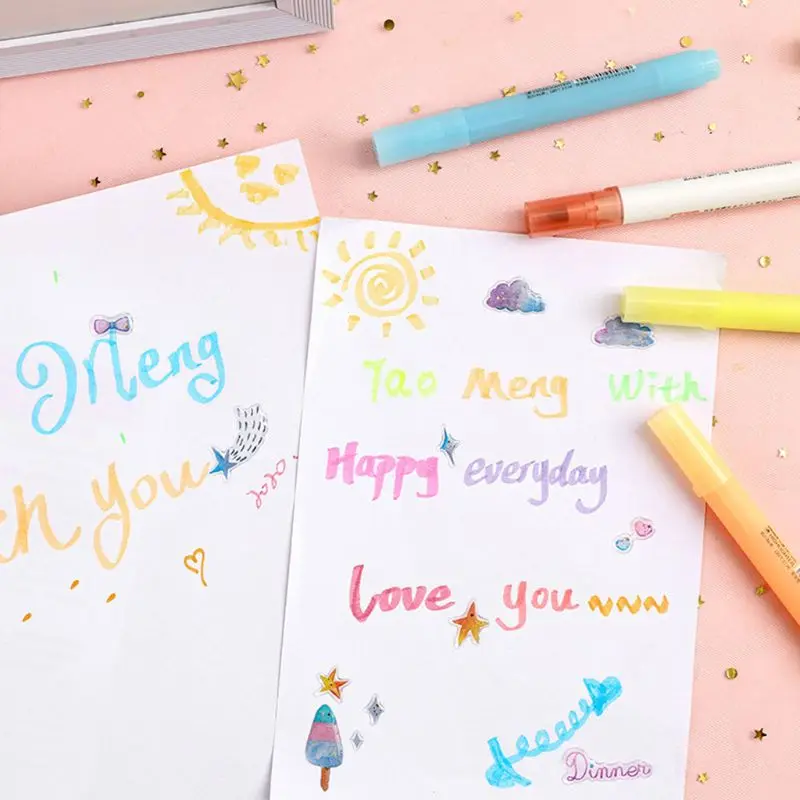 Meng
th you
2020.
Tao Meng With
Happy everyday
Love you
Dinner